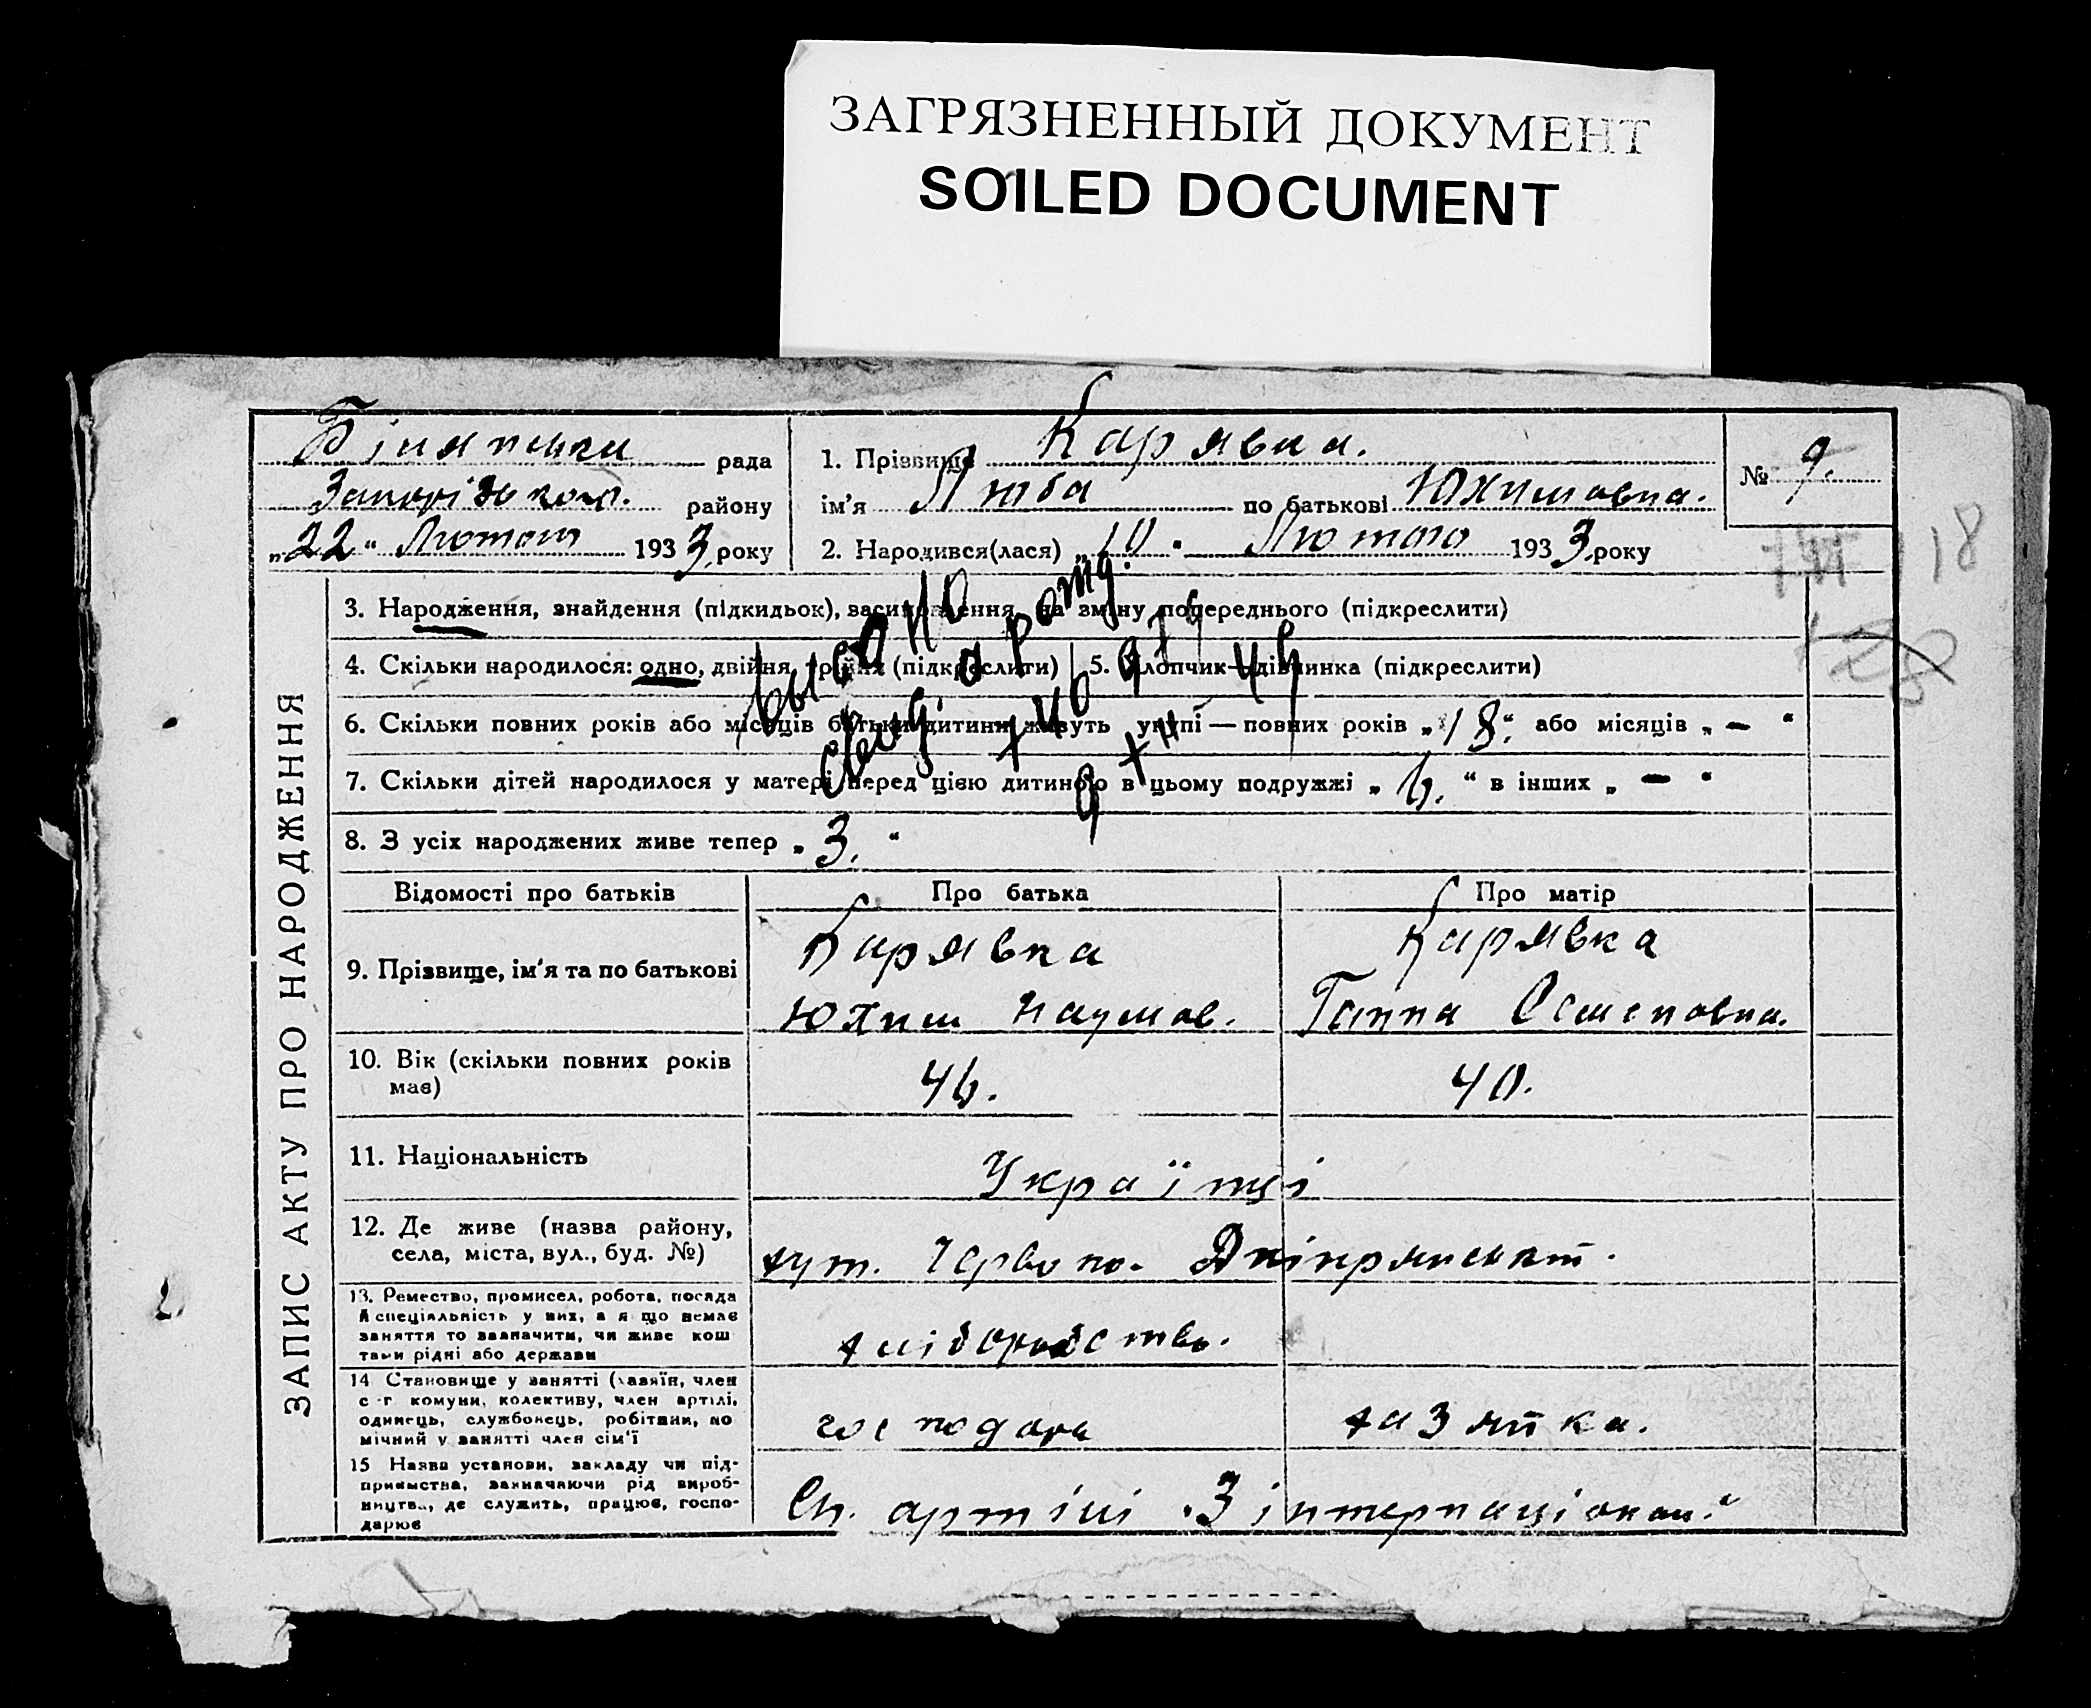 ЗАГРЯЗНЕННЫЙ ДОКУМЕНТ
SOILED DOCUMENT
рада
району
„22“ Лютого 1933 року
1. Прізвище Карявка.
ім'я Люба по батькові Юхимовна.
2. Народився(лася) „10“ Лютого 1933 року
№ 9.
18
28
ЗАПИС АКТУ ПРО НАРОДЖЕННЯ
3. Народження, знайдення (підкидьок), засиновлення, на зміну попереднього (підкреслити)
4. Скільки народилося: одно, двійня, тройня (підкреслити)
5. Хлопчик—дівчинка (підкреслити)
6. Скільки повних років або місяців батьки дитини живуть укупі — повних років „18“ або місяців „—“
7. Скільки дітей народилося у матері перед цією дитиною в цьому подружжі „6.“ в інших „—“
8. З усіх народжених живе тепер „3.“
выдано
свид. о рожд.
Відомості про батьків
Про батька
Про матір
9. Прізвище, ім'я та по батькові
Карявка
Юхим Наумов.
Карявка
Ганна Семеновна.
10. Вік (скільки повних років має)
46.
40.
11. Національність
Українці
12. Де живе (назва району,
села, міста, вул., буд. №)
хут. Червоно-Дніпрянськ
13. Ремество, промисел, робота, посада
й спеціяльність у них, а якщо немає
заняття то зазначити, чи живе кош
тами рідні або держави
хліборобство.
14 Становище у занятті (хазяїн, член
с.-г комуни, колективу, член артілі,
одинець, службовець, робітник, по
мічний у занятті член сім'ї
господарь
хазяйка.
15 Назва установи, закладу чи під-
приємства, зазначаючи рід вироб-
ництва, де служить, працює, госпо-
дарює
Сп. артілі „3 інтернаціонал“